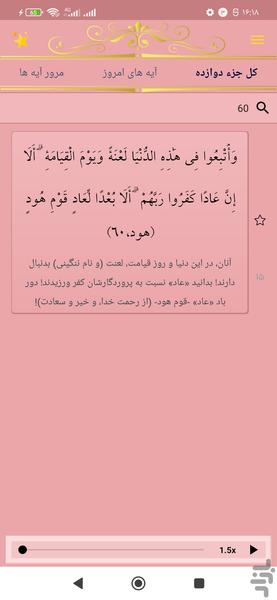 ۱۶:۱۸
65
کل جزء دوازده
آیه های امروز
مرور آیه ها
60
وَأُتْبِعُوا فِي هَٰذِهِ الدُّنْيَا لَعْنَةً وَيَوْمَ الْقِيَامَةِ ۗ أَلَا
إِنَّ عَادًا كَفَرُوا رَبَّهُمْ ۗ أَلَا بُعْدًا لِّعَادٍ قَوْمِ هُودٍ
(هود،۶۰)
آنان، در این دنیا و روز قیامت، لعنت (و نام ننگینی) بدنبال
دارند! بدانید «عاد» نسبت به پروردگارشان کفر ورزیدند! دور
باد «عاد» -قوم هود- (از رحمت خدا، و خیر و سعادت)!
۱۵
1.5x
بازار